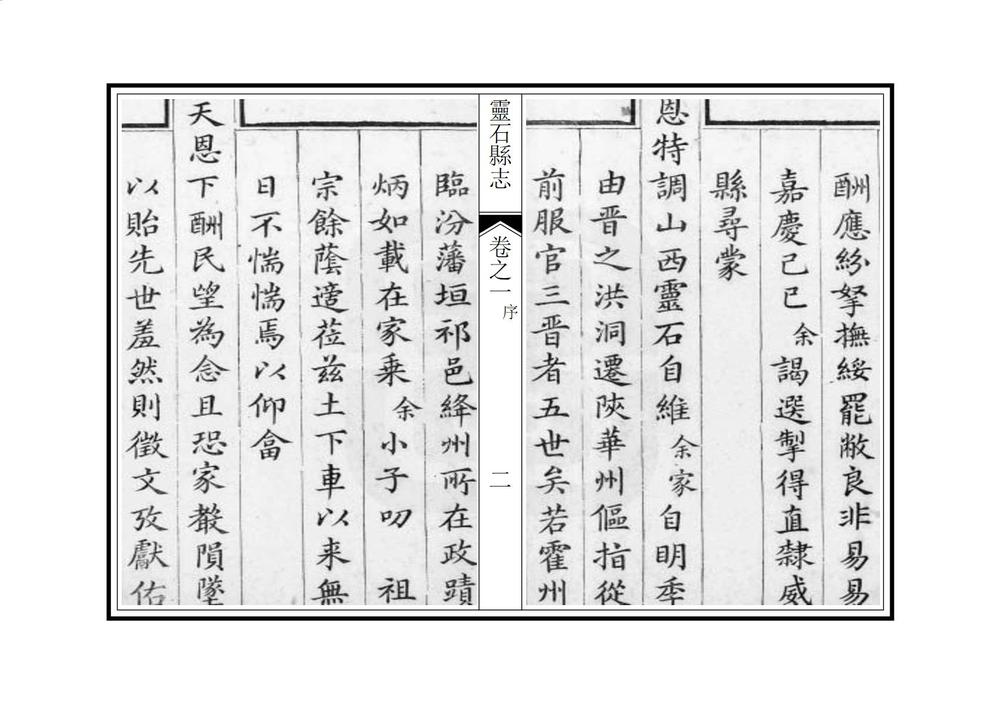 酬應紛拏撫綏罷敝良非易易
嘉慶己巳余謁選掣得直隸威
縣尋蒙
恩特調山西靈石自維余家自明季
由晉之洪洞遷陜華州傴指從
前服官三晉者五世矣若霍州
靈石縣志
卷之一
序
二
臨汾藩垣祁邑絳州所在政蹟
炳如載在家乘余小子叨 祖
宗餘蔭適莅茲土下車以来無
日不惴惴焉以仰畣
天恩下酬民望為念且恐家聲隕墜
以貽先世羞然則徵文攷獻佑